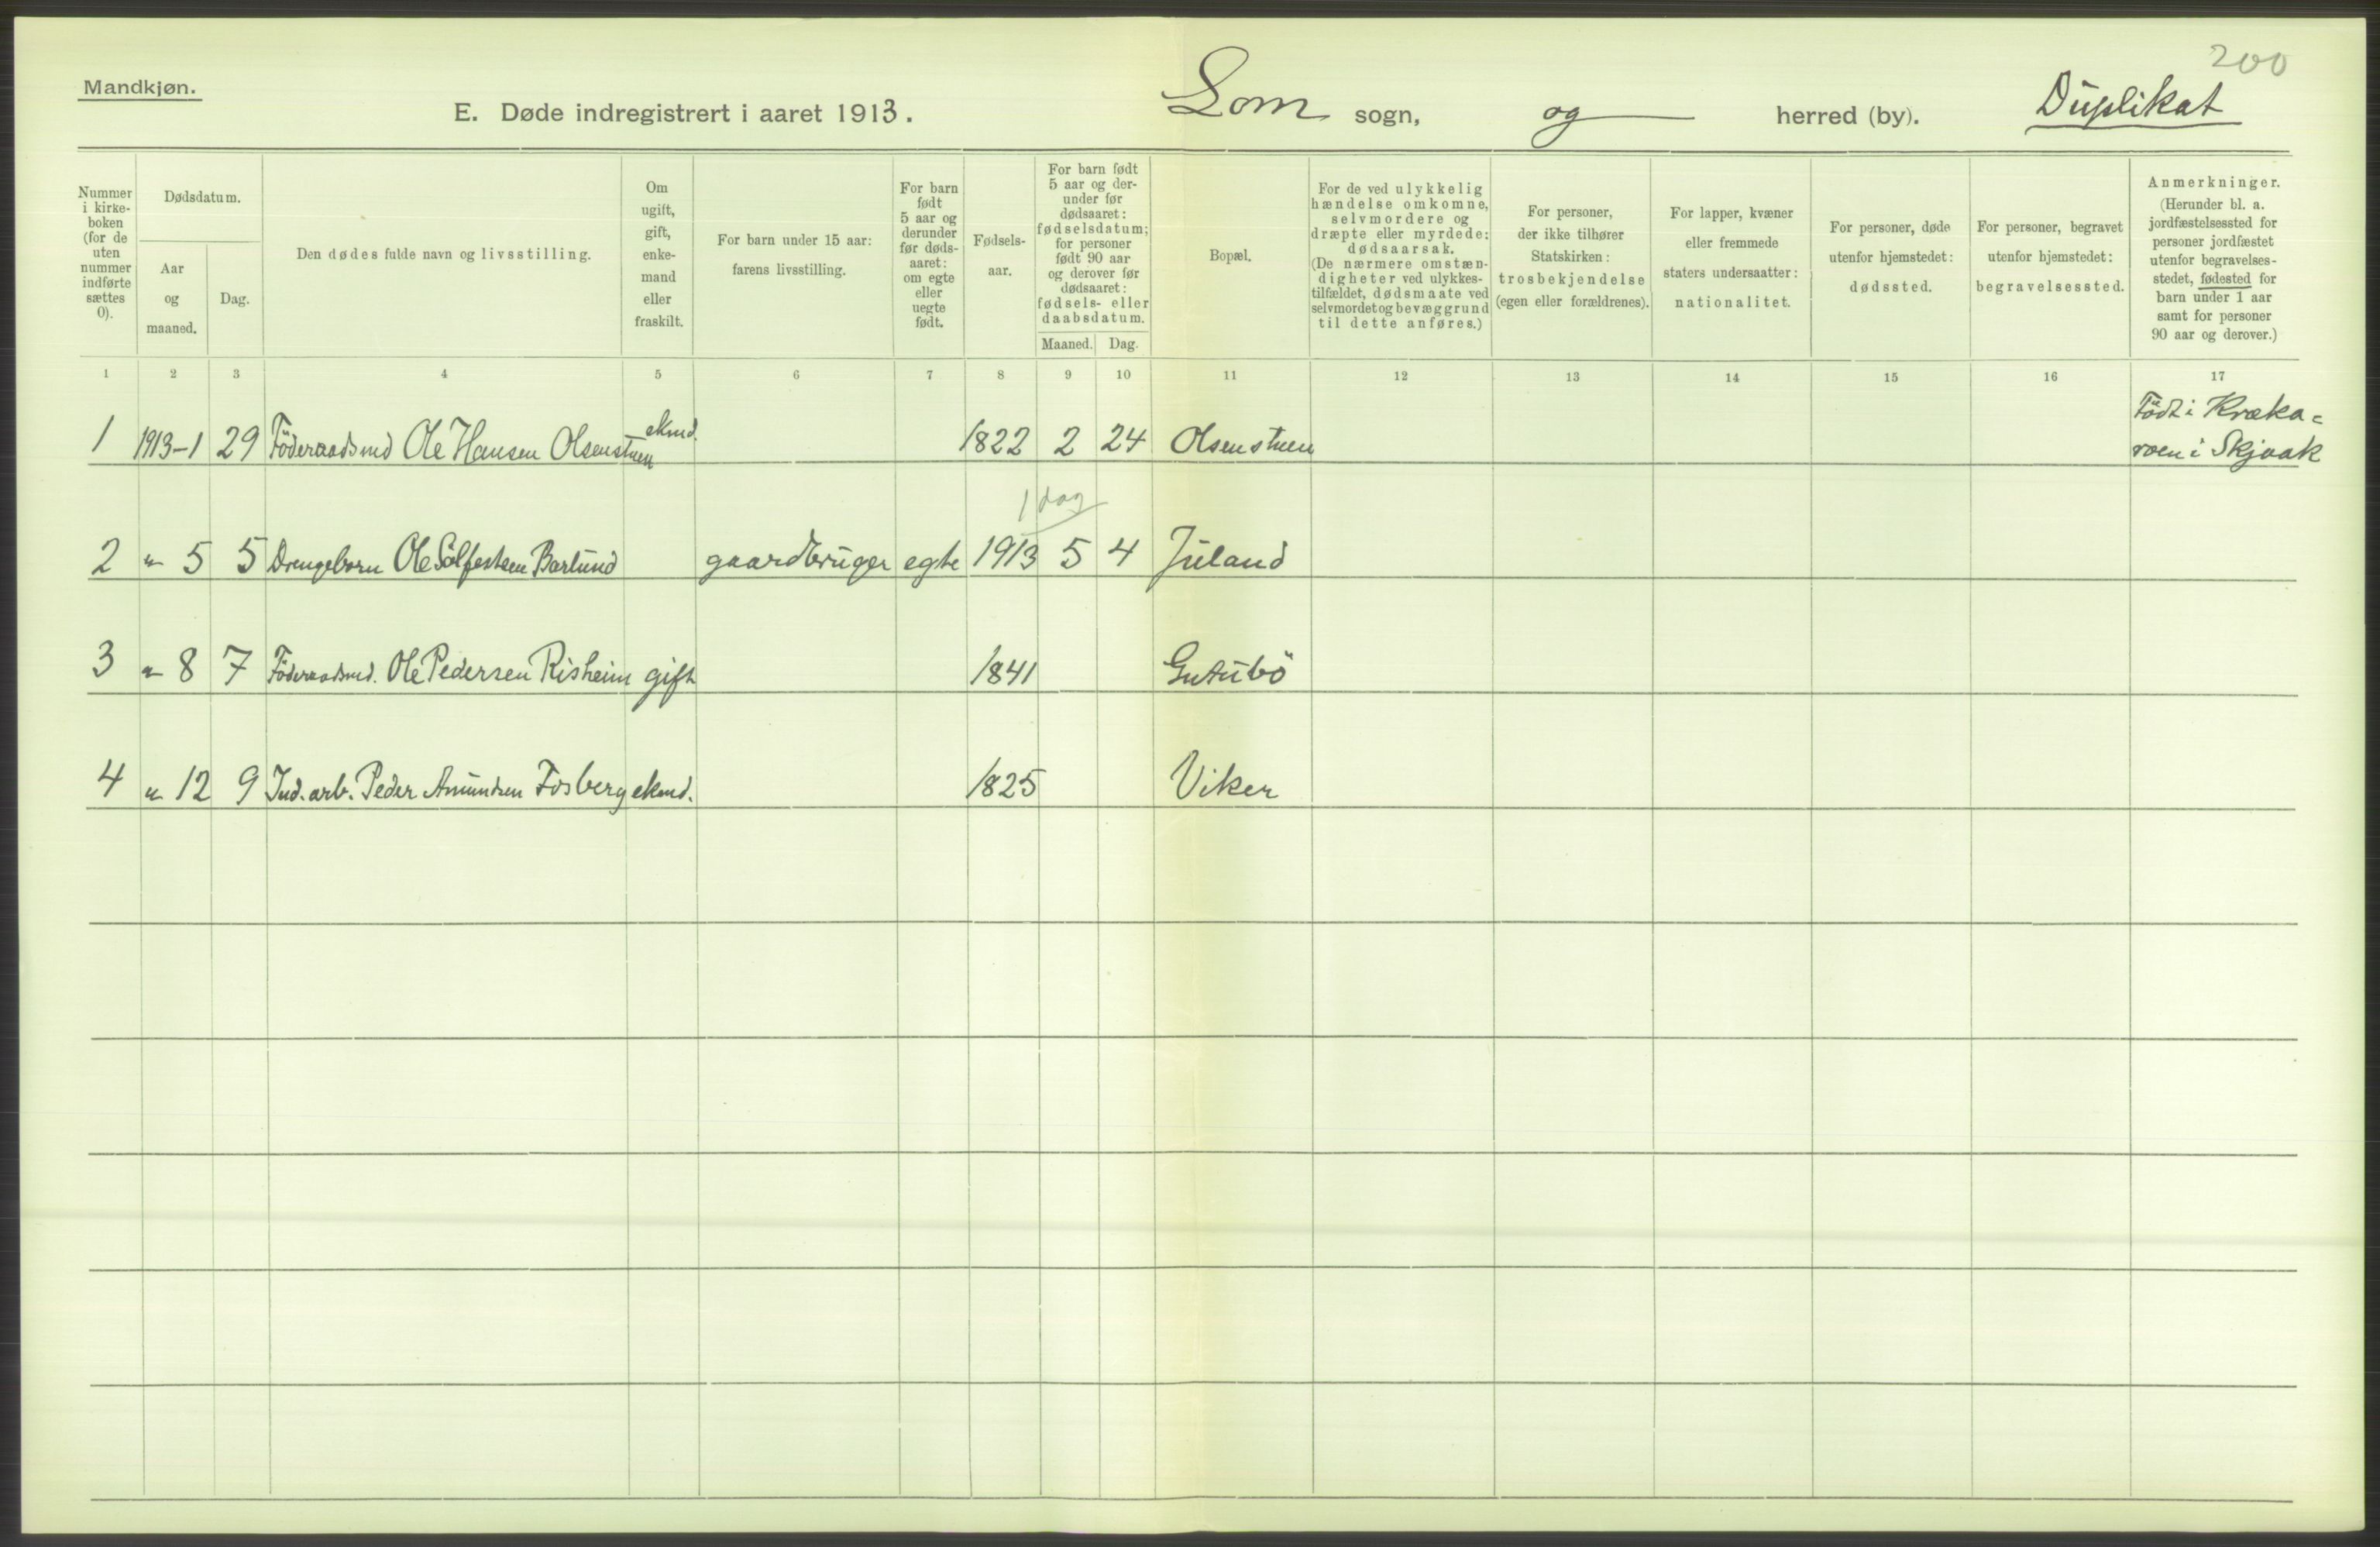 200
Mandkjøn.
E. Døde indregistrert i aaret 1913. Lom sogn, og herred (by). Duplikat
Nummer i kirke- boken (for de uten nummer indførte sættes 0).
Dødsdatum.
Aar og maaned.
Dag.
Den dødes fulde navn og livsstilling.
Om ugift, gift, enke- mand eller fraskilt.
For barn under 15 aar: farens livsstilling.
For barn født 5 aar og derunder før døds- aaret: om egte eller uegte født.
Fødsels- aar.
For barn født 5 aar og der- under før dødsaaret: fødselsdatum; for personer født 90 aar og derover før dødsaaret: fødsels- eller daabsdatum.
Maaned. Dag.
Bopæl.
For de ved ulykkelig hændelse omkomne, selvmordere og dræpte eller myrdede: dødsaarsak. (De nærmere omstæn- digheter ved ulykkes- tilfældet, dødsmaate ved selvmordet og bevæggrund til dette anføres.)
For personer, der ikke tilhører Statskirken: trosbekjendelse (egen eller forældrenes).
For lapper, kvæner eller fremmede staters undersaatter: nationalitet.
For personer, døde utenfor hjemstedet: dødssted.
For personer, begravet utenfor hjemstedet: begravelsessted.
Anmerkninger. (Herunder bl. a. jordfæstelsessted for personer jordfæstet utenfor begravelses- stedet, fødested for barn under 1 aar samt for personer 90 aar og derover.)
1 2 3 4 5 6 7 8 9 10 11 12 13 14 15 16 17
1 1913-1 29 Föderaadsmd Ole Hansen Olsenstuen ekmd. 1822 2 24 Olsenstuen Födt i Kræka= roen i Skjaak
1 dag
2 " 5 5 Drengebarn Ole Sølfestsen Barlund gaardbruger egte 1913 5 4 Juland
3 " 8 7 Föderaadsmd. Ole Pedersen Risheim gift 1841 Gutubö
4 " 12 9 Ind. arb. Peder Amundsen Fosberg ekmd. 1825 Viken